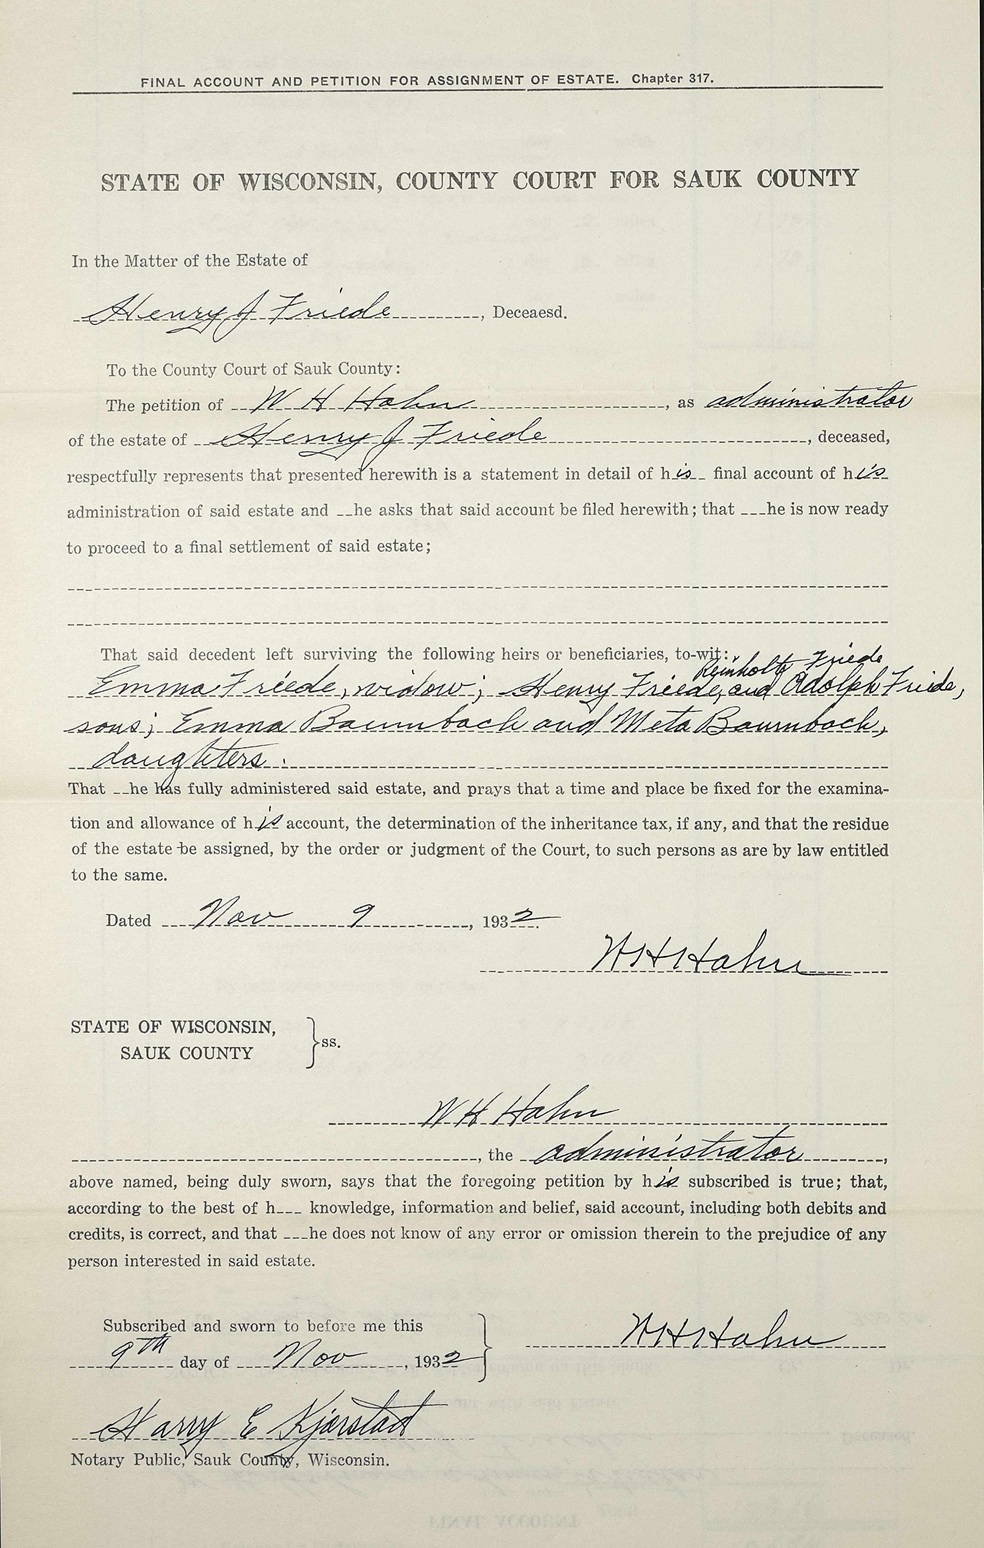 FINAL ACCOUNT AND PETITION FOR ASSIGNMENT OF ESTATE. Chapter 317.
STATE OF WISCONSIN, COUNTY COURT FOR SAUK COUNTY
In the Matter of the Estate of
Henry J Friede, Deceaesd.
To the County Court of Sauk County:
The petition of W H Hahn, as administrator
of the estate of Henry J Friede, deceased,
respectfully represents that presented herewith is a statement in detail of his final account of his
administration of said estate and __he asks that said account be filed herewith; that ___he is now ready
to proceed to a final settlement of said estate;
That said decedent left surviving the following heirs or beneficiaries, to-wit:
Reinholt Friede
Emma Friede, widow; Henry Friede, and Adolph Friede,
sons; Emma Baumbach and Meta Baumbach,
daughters.
That __he has fully administered said estate, and prays that a time and place be fixed for the examina-
tion and allowance of his account, the determination of the inheritance tax, if any, and that the residue
of the estate be assigned, by the order or judgment of the Court, to such persons as are by law entitled
to the same.
Dated Nov 9, 1932.
W H Hahn
STATE OF WISCONSIN,
SAUK COUNTY } ss.
W H Hahn
, the administrator,
above named, being duly sworn, says that the foregoing petition by his subscribed is true; that,
according to the best of h___ knowledge, information and belief, said account, including both debits and
credits, is correct, and that ___he does not know of any error or omission therein to the prejudice of any
person interested in said estate.
Subscribed and sworn to before me this
9th day of Nov, 1932
W H Hahn
Harry E Kjorstad
Notary Public, Sauk County, Wisconsin.